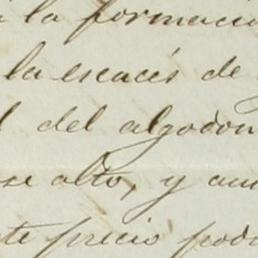 a la formació
la escacés de
l del algodon
se alto, y aun
te precio pod